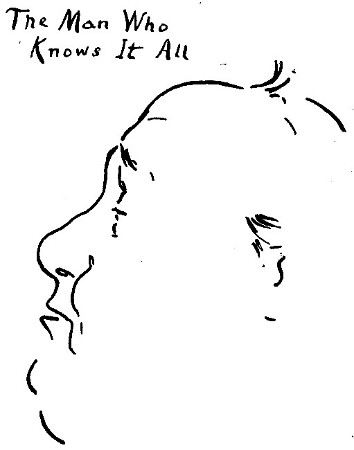 The Man Who
Knows It All